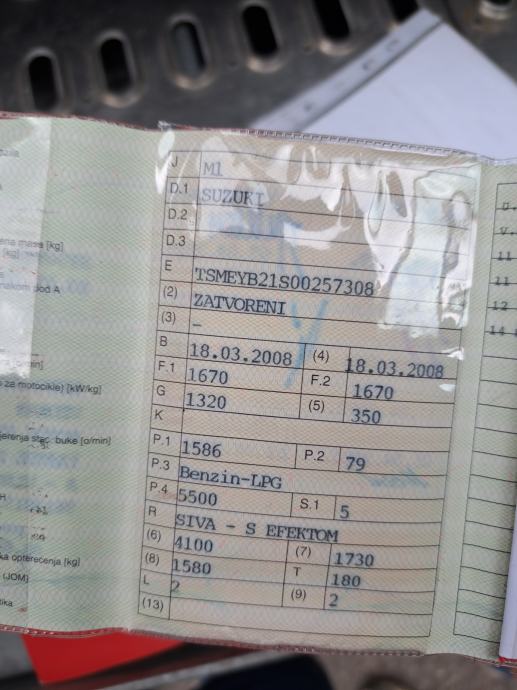 ena masa [kg]
nakom pod A
za motocikle) [kW/kg]
jerenja stac. buke [o/min]
ka opterećenja [kg]
(JOM)
J M1
D.1 SUZUKI
D.2
D.3
E TSMEYB21S00257308
(2) ZATVORENI
(3) –
B 18.03.2008 (4) 18.03.2008
F.1 1670 F.2 1670
G 1320 (5) 350
K
P.1 1586 P.2 79
P.3 Benzin-LPG
P.4 5500 S.1 5
R SIVA - S EFEKTOM
(6) 4100 (7) 1730
(8) 1580 T 180
L 2 (9) 2
(13)
11
11
12
14